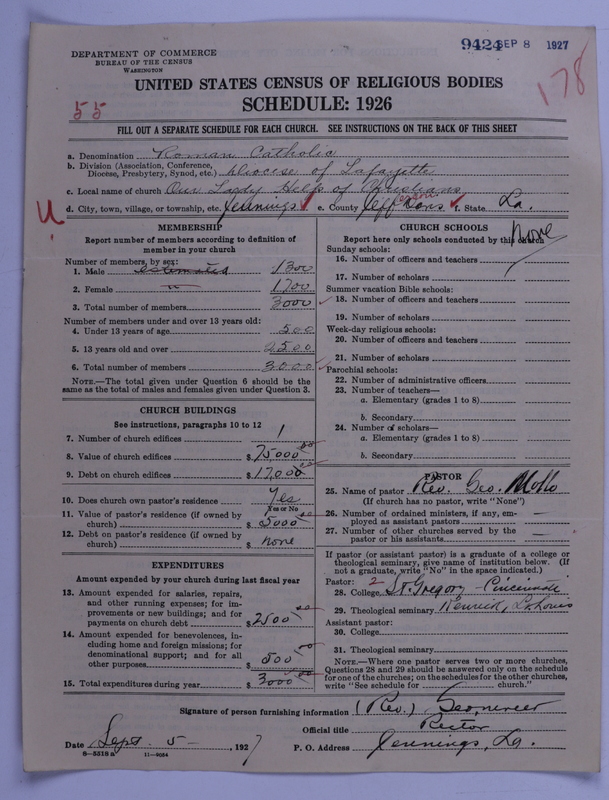 9424 SEP 8 1927
DEPARTMENT OF COMMERCE
BUREAU OF THE CENSUS
WASHINGTON
178
UNITED STATES CENSUS OF RELIGIOUS BODIES
55
SCHEDULE: 1926
FILL OUT A SEPARATE SCHEDULE FOR EACH CHURCH. SEE INSTRUCTIONS ON THE BACK OF THIS SHEET
a. Denomination Roman Catholic
b. Division (Association, Conference, Diocese, Presbytery, Synod, etc.) Diocese of Lafayette
c. Local name of church Our Lady Help of Christians
d. City, town, village, or township, etc. Jennings e. County Jeff Davis f. State La.
MEMBERSHIP
Report number of members according to definition of
member in your church
Number of members, by sex:
1. Male estimated 1300
2. Female " 1700
3. Total number of members 3000
Number of members under and over 13 years old:
4. Under 13 years of age 500
5. 13 years old and over 2500
6. Total number of members 3000
NOTE.—The total given under Question 6 should be the
same as the total of males and females given under Question 3.
CHURCH BUILDINGS
See instructions, paragraphs 10 to 12
7. Number of church edifices 1
8. Value of church edifices $ 75000 00
9. Debt on church edifices $ 17,000
10. Does church own pastor's residence Yes
Yes or No
11. Value of pastor's residence (if owned by
church) $ 5000 00
12. Debt on pastor's residence (if owned by
church) $ none
EXPENDITURES
Amount expended by your church during last fiscal year
13. Amount expended for salaries, repairs,
and other running expenses; for im-
provements or new buildings; and for
payments on church debt $ 2500
14. Amount expended for benevolences, in-
cluding home and foreign missions; for
denominational support; and for all
other purposes $ 500 00
15. Total expenditures during year $ 3000 00
CHURCH SCHOOLS
Report here only schools conducted by this church
None
Sunday schools:
16. Number of officers and teachers
17. Number of scholars
Summer vacation Bible schools:
18. Number of officers and teachers
19. Number of scholars
Week-day religious schools:
20. Number of officers and teachers
21. Number of scholars
Parochial schools:
22. Number of administrative officers
23. Number of teachers—
a. Elementary (grades 1 to 8)
b. Secondary
24. Number of scholars—
a. Elementary (grades 1 to 8)
b. Secondary
PASTOR
25. Name of pastor Rev. Geo.
(If church has no pastor, write "None")
26. Number of ordained ministers, if any, em-
ployed as assistant pastors —
27. Number of other churches served by the
pastor or his assistants —
If pastor (or assistant pastor) is a graduate of a college or
theological seminary, give name of institution below. (If
not a graduate, write "No" in the space indicated.)
Pastor: 2
28. College St. Gregory - Cincinnati
29. Theological seminary Kenrick, St. Louis
Assistant pastor:
30. College
31. Theological seminary
NOTE.—Where one pastor serves two or more churches,
Questions 28 and 29 should be answered only on the schedule
for one of the churches; on the schedules for the other churches,
write "See schedule for church."
Signature of person furnishing information (Rev.)
Official title Rector
Date Sept. 5 - 1927 P. O. Address Jennings, La.
8—5518 a 11—4054